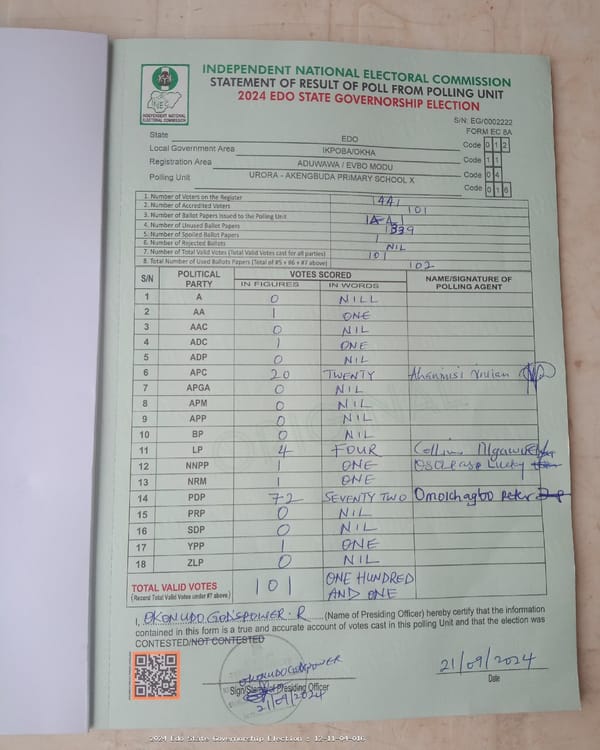 INDEPENDENT NATIONAL ELECTORAL COMMISSION
STATEMENT OF RESULT OF POLL FROM POLLING UNIT
2024 EDO STATE GOVERNORSHIP ELECTION
INDEPENDENT NATIONAL ELECTORAL COMMISSION
S/N: EG/0002222
FORM EC 8A
State EDO Code 0 1 2
Local Government Area IKPOBA/OKHA Code 1 1
Registration Area ADUWAWA / EVBO MODU Code 0 4
Polling Unit URORA - AKENGBUDA PRIMARY SCHOOL X Code 0 1 6
1. Number of Voters on the Register 1441
2. Number of Accredited Voters 101
3. Number of Ballot Papers Issued to the Polling Unit
4. Number of Unused Ballot Papers 1339
5. Number of Spoiled Ballot Papers 1
6. Number of Rejected Ballots NIL
7. Number of Total Valid Votes (Total Valid Votes cast for all parties) 101
8. Total Number of Used Ballots Papers (Total of #5 + #6 + #7 above) 102
S/N POLITICAL PARTY VOTES SCORED NAME/SIGNATURE OF POLLING AGENT
IN FIGURES IN WORDS
1 A 0 NILL
2 AA 1 ONE
3 AAC 0 NIL
4 ADC 1 ONE
5 ADP 0 NIL
6 APC 20 TWENTY Vivian
7 APGA 0 NIL
8 APM 0 NIL
9 APP 0 NIL
10 BP 0 NIL
11 LP 4 FOUR
12 NNPP 1 ONE Lucky
13 NRM 1 ONE
14 PDP 72 SEVENTY TWO Peter
15 PRP 0 NIL
16 SDP 0 NIL
17 YPP 1 ONE
18 ZLP 0 NIL
TOTAL VALID VOTES 101 ONE HUNDRED AND ONE
(Record Total Valid Votes under #7 above)
I, OKONUDO GODSPOWER. R (Name of Presiding Officer) hereby certify that the information
contained in this form is a true and accurate account of votes cast in this polling Unit and that the election was
CONTESTED/NOT CONTESTED
OKONUDO GODSPOWER
21/09/2024
Presiding Officer
21/09/2024
Date
2024 Edo State Governorship Election : 12-11-04-016